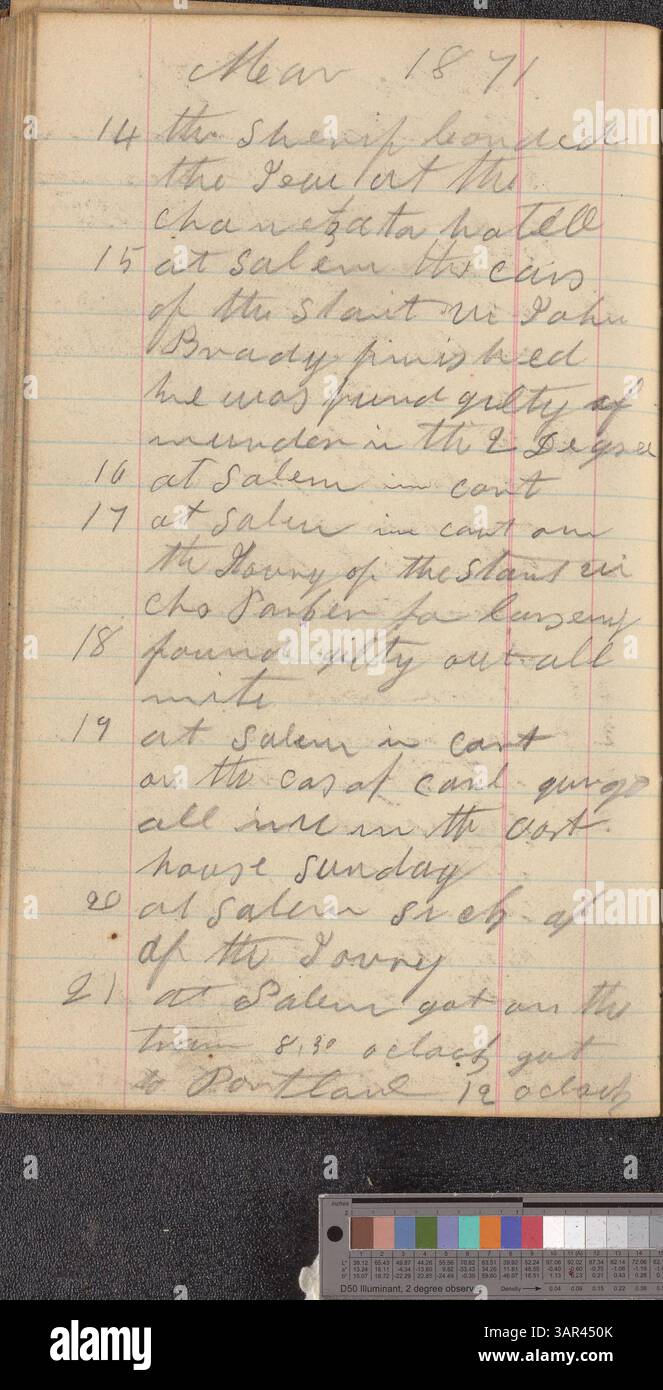 Mar 1871
14 the Sherif bonded
the Jew at the
chamezata hotell
15 at Salem the cais
of the Stait vr John
Brady finished
he was found gilty of
murder in the 2 Degree
16 at Salem in cort
17 at Salem in cort on
the Joury of the Stait vr
Chs Parker for larseny
18 found gilty out all
nite
19 at Salem in cort
on the cas of carl
all nite in the cort
house Sunday
20 at Salem sick of
of the Joury
21 at Salem got on the
train 8,30 oclock got
to Portland 12 oclock
inches
D50 Illuminant, 2 degree observer
Density
alamy
Image ID: 3AR450K
www.alamy.com